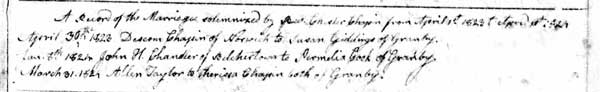 A Record of the Marriages solemnized by Rev. Chester Chapin from April 1st 1823 to April 1st 1824
April 30th 1823 Chapin of to Susan Giddings of Granby.
Jan. 8th 1824 John H. Chandler of Belchertown to Permelia Cook of Granby.
March 31. 1824 Allen Taylor to Theresa Chapin both of Granby.